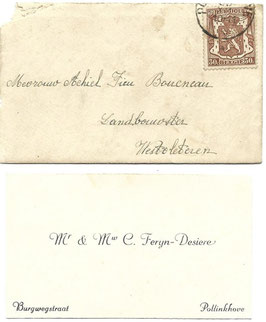 30 30
Mevrouw Achiel Fieu Boucneau
Landbouwster
Westvleteren
Mr & Mw C. Feryn-Desiere
Burgwegstraat Pollinkhove